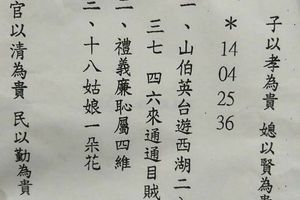 子以孝為貴 媳以賢為貴
*
14
04
25
36
一、山伯英台遊西湖二
三七 四六來通通目賊
二、禮義廉恥屬四維
三、十八姑娘一朵花
官以清為貴 民以勤為貴